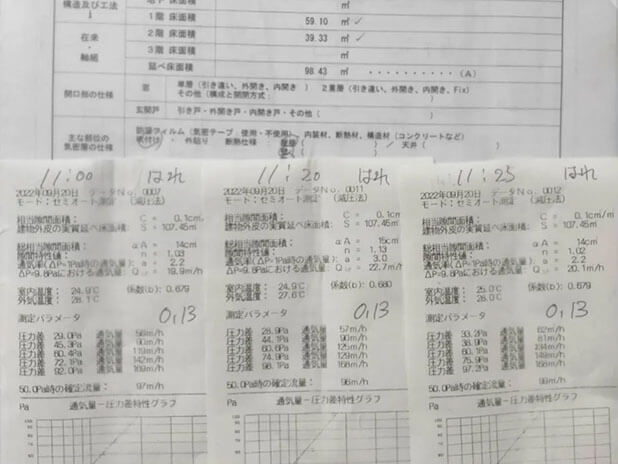 構造及び工法
在来・軸組
1階 床面積 59.10 ㎡ ✓
2階 床面積 39.33 ㎡ ✓
3階 床面積 ㎡
延べ床面積 98.43 ㎡ ・・・・・・・・・・(A)
開口部の仕様
窓 単層(引き違い、外開き、内開き ) 2重層(引き違い、外開き、内開き、Fix)
その他(構成と開閉方式: )
玄関戸 引き戸・外開き戸・内開き戸・その他( )
主な部位の気密層の仕様
防湿フィルム(気密テープ 使用・不使用)、内装材、断熱材、構造材(コンクリートなど)
・外貼り 断熱仕様: ) / 天井( )
11:00 はれ
2022年09月20日 データNo. 0007
モード:セミオート測定 (減圧法)
相当隙間面積: C = 0.1cm
建物外皮の実質延べ床面積: S = 107.45m
総相当隙間面積: αA = 14cm
隙間特性値: n = 1.03
通気率(ΔP=1Pa時の値): a = 2.2
ΔP=9.8Paにおける通気量: Q = 19.9m/h
室内温度: 24.9℃ 係数(b): 0.679
外気温度: 28.1℃
測定パラメータ 0,13
圧力差 29.0Pa 通気量 56m/h
圧力差 45.3Pa 通気量
圧力差 60.4Pa 通気量
圧力差 72.1Pa 通気量 142m/h
圧力差 92.0Pa 通気量
50.0Pa時の確定流量: 97m/h
Pa 通気量-圧力差特性グラフ
11:20 はれ
2022年09月20日 データNo. 0011
モード:セミオート測定 (減圧法)
相当隙間面積: C = 0.1cm
建物外皮の実質延べ床面積: S = 107.45m
総相当隙間面積: αA = 15cm
隙間特性値: n = 1.13
通気率(ΔP=1Pa時の値): a = 3.0
ΔP=9.8Paにおける通気量: Q = 22.7m/h
室内温度: 24.9℃ 係数(b): 0.680
外気温度: 27.6℃
測定パラメータ 0,13
圧力差 28.9Pa 通気量 57m/h
圧力差 44.1Pa 通気量 90m/h
圧力差 60.6Pa 通気量 125m/h
圧力差 74.9Pa 通気量 129m/h
圧力差 98.1Pa 通気量 168m/h
50.0Pa時の確定流量: 96m/h
通気量-圧力差特性グラフ
11:25 はれ
2022年09月20日 データNo. 0012
モード:セミオート測定 (減圧法)
相当隙間面積: C = 0.1cm/m
建物外皮の実質延べ床面積: S = 107.45m
総相当隙間面積: αA = 14cm
隙間特性値: n = 1.02
通気率(ΔP=1Pa時の値): a = 2.2
ΔP=9.8Paにおける通気量: Q = 20.1m/h
室内温度: 25.0℃ 係数(b): 0.679
外気温度: 28.0℃
測定パラメータ 0,13
圧力差 33.2Pa 通気量 62m/h
圧力差 38.9Pa 通気量 81m/h
圧力差 60.1Pa 通気量
圧力差 75.9Pa 通気量
圧力差 97.2Pa 通気量 168m/h
50.0Pa時の確定流量: 99m/h
Pa 通気量-圧力差特性グラフ